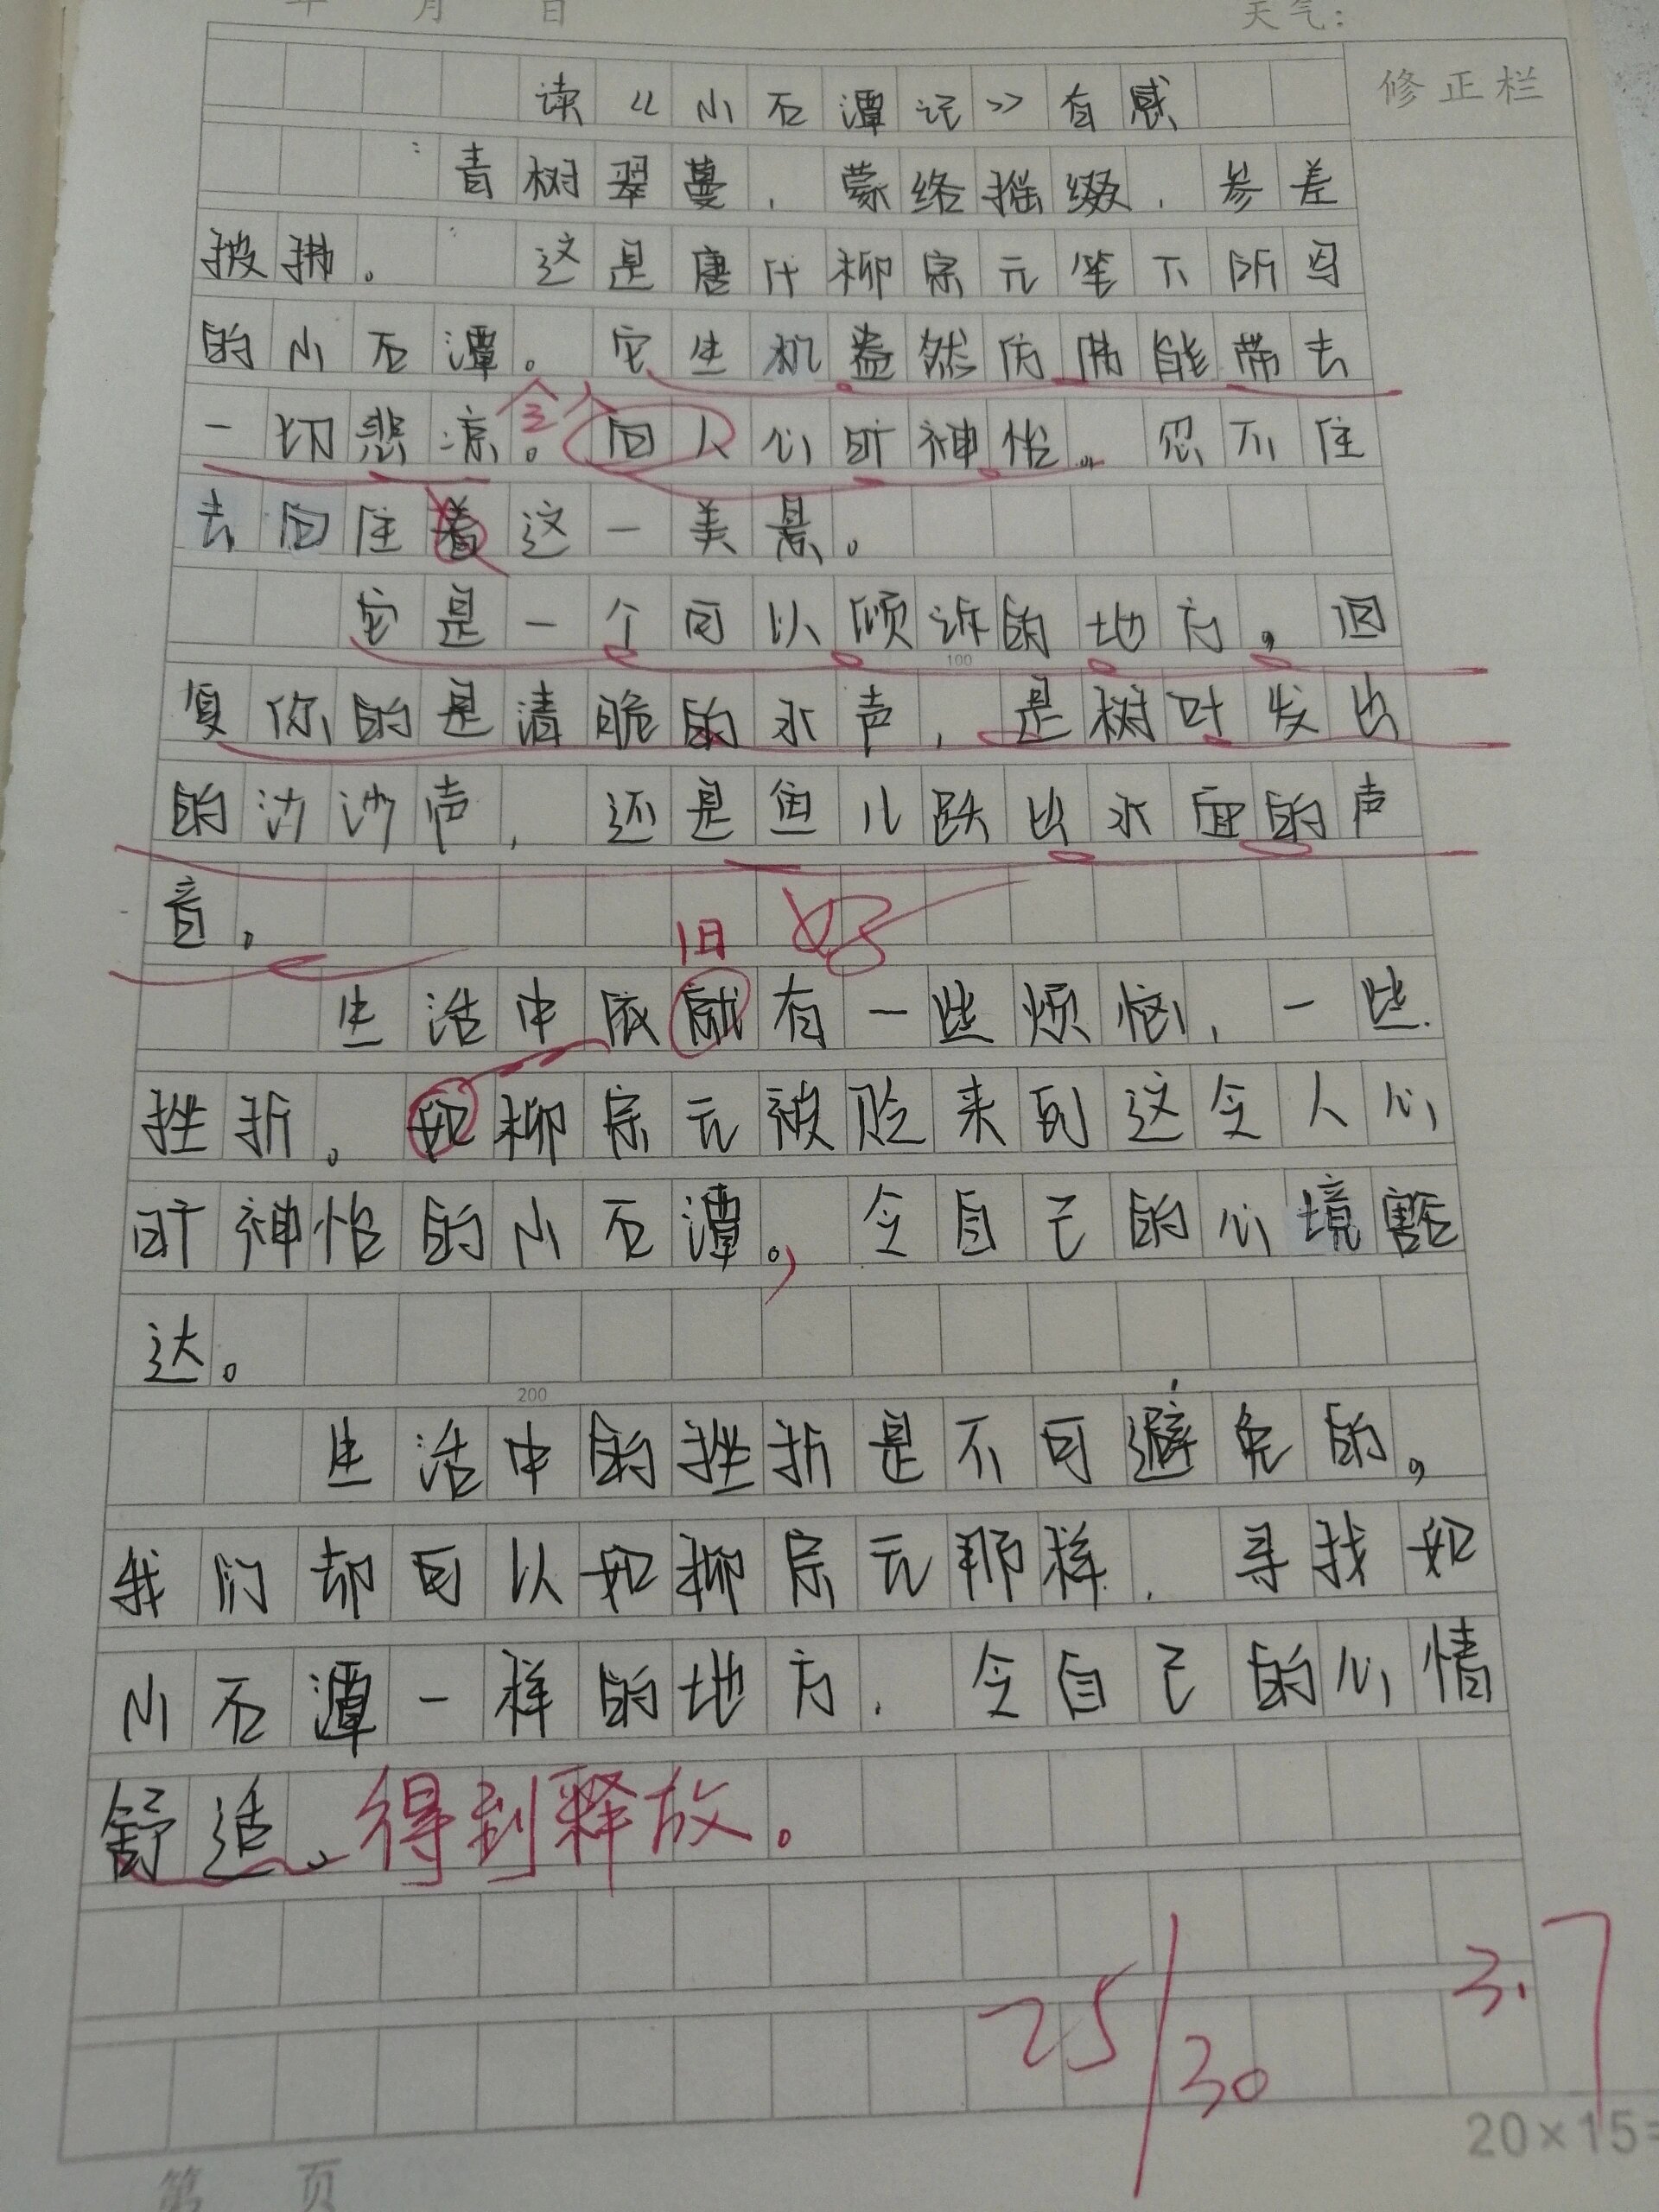 年 月 日 天气:
修正栏
读《小石潭记》有感
青树翠蔓,蒙络摇缀,参差
披拂。 这是唐代柳宗元笔下所写
的小石潭。它生机盎然仿佛能带去
一切悲凉。回人心旷神怡。忍不住
令人
去回住着这一美景。
它是一个可以倾诉的地方,回
100
复你的是清脆的水声,是树叶发出
的沙沙声,还是鱼儿跃出水面的声
音。
旧 好
生活中依就有一些烦恼,一些
挫折。如柳宗元被贬来到这令人心
旷神怡的小石潭。,令自己的心境豁
达。
200
生活中的挫折是不可避免的,
我们却可以如柳宗元那样,寻找如
小石潭一样的地方,令自己的心情
舒适、得到释放。
25/30
3.7
20×15=
第 页